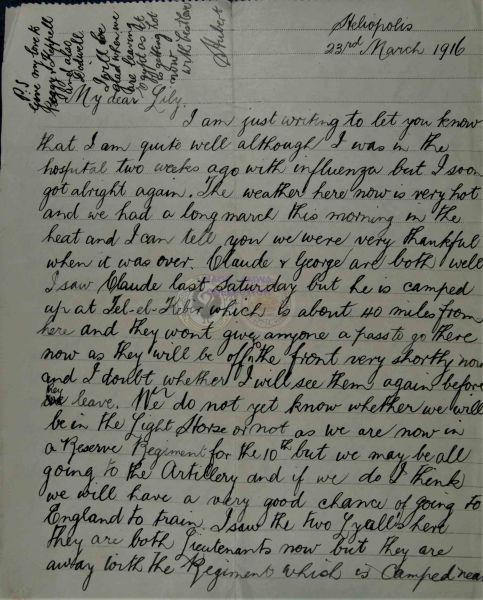 Heliopolis
23rd March 1916
My dear Lily,
I am just writing to let you know
that I am quite well although I was in the
hospital two weeks ago with influenza but I soon
got alright again. The weather here now is very hot
and we had a long march this morning in the
heat and I can tell you we were very thankful
when it was over. Claude & George are both well
I saw Claude last Saturday but he is camped
up at Tel-el-Kebir which is about 40 miles from
here and they wont give anyone a pass to go there
now as they will be off to the front very shortly now
and I doubt whether I will see them again before
they leave. We do not yet know whether we will
be in the Light Horse or not as we are now in
a Reserve Regiment for the 10th but we may be all
going to the Artillery and if we do I think
we will have a very good chance of going to
England to train. I saw the two Lyall's here
they are both Lieutenants now but they are
away with the Regiment which is camped near
P.S
Give my love
Peggy & Chappell
and also
I will be
glad when we
are leaving
Egypt as it
is getting hot
now
with best love
Hubert